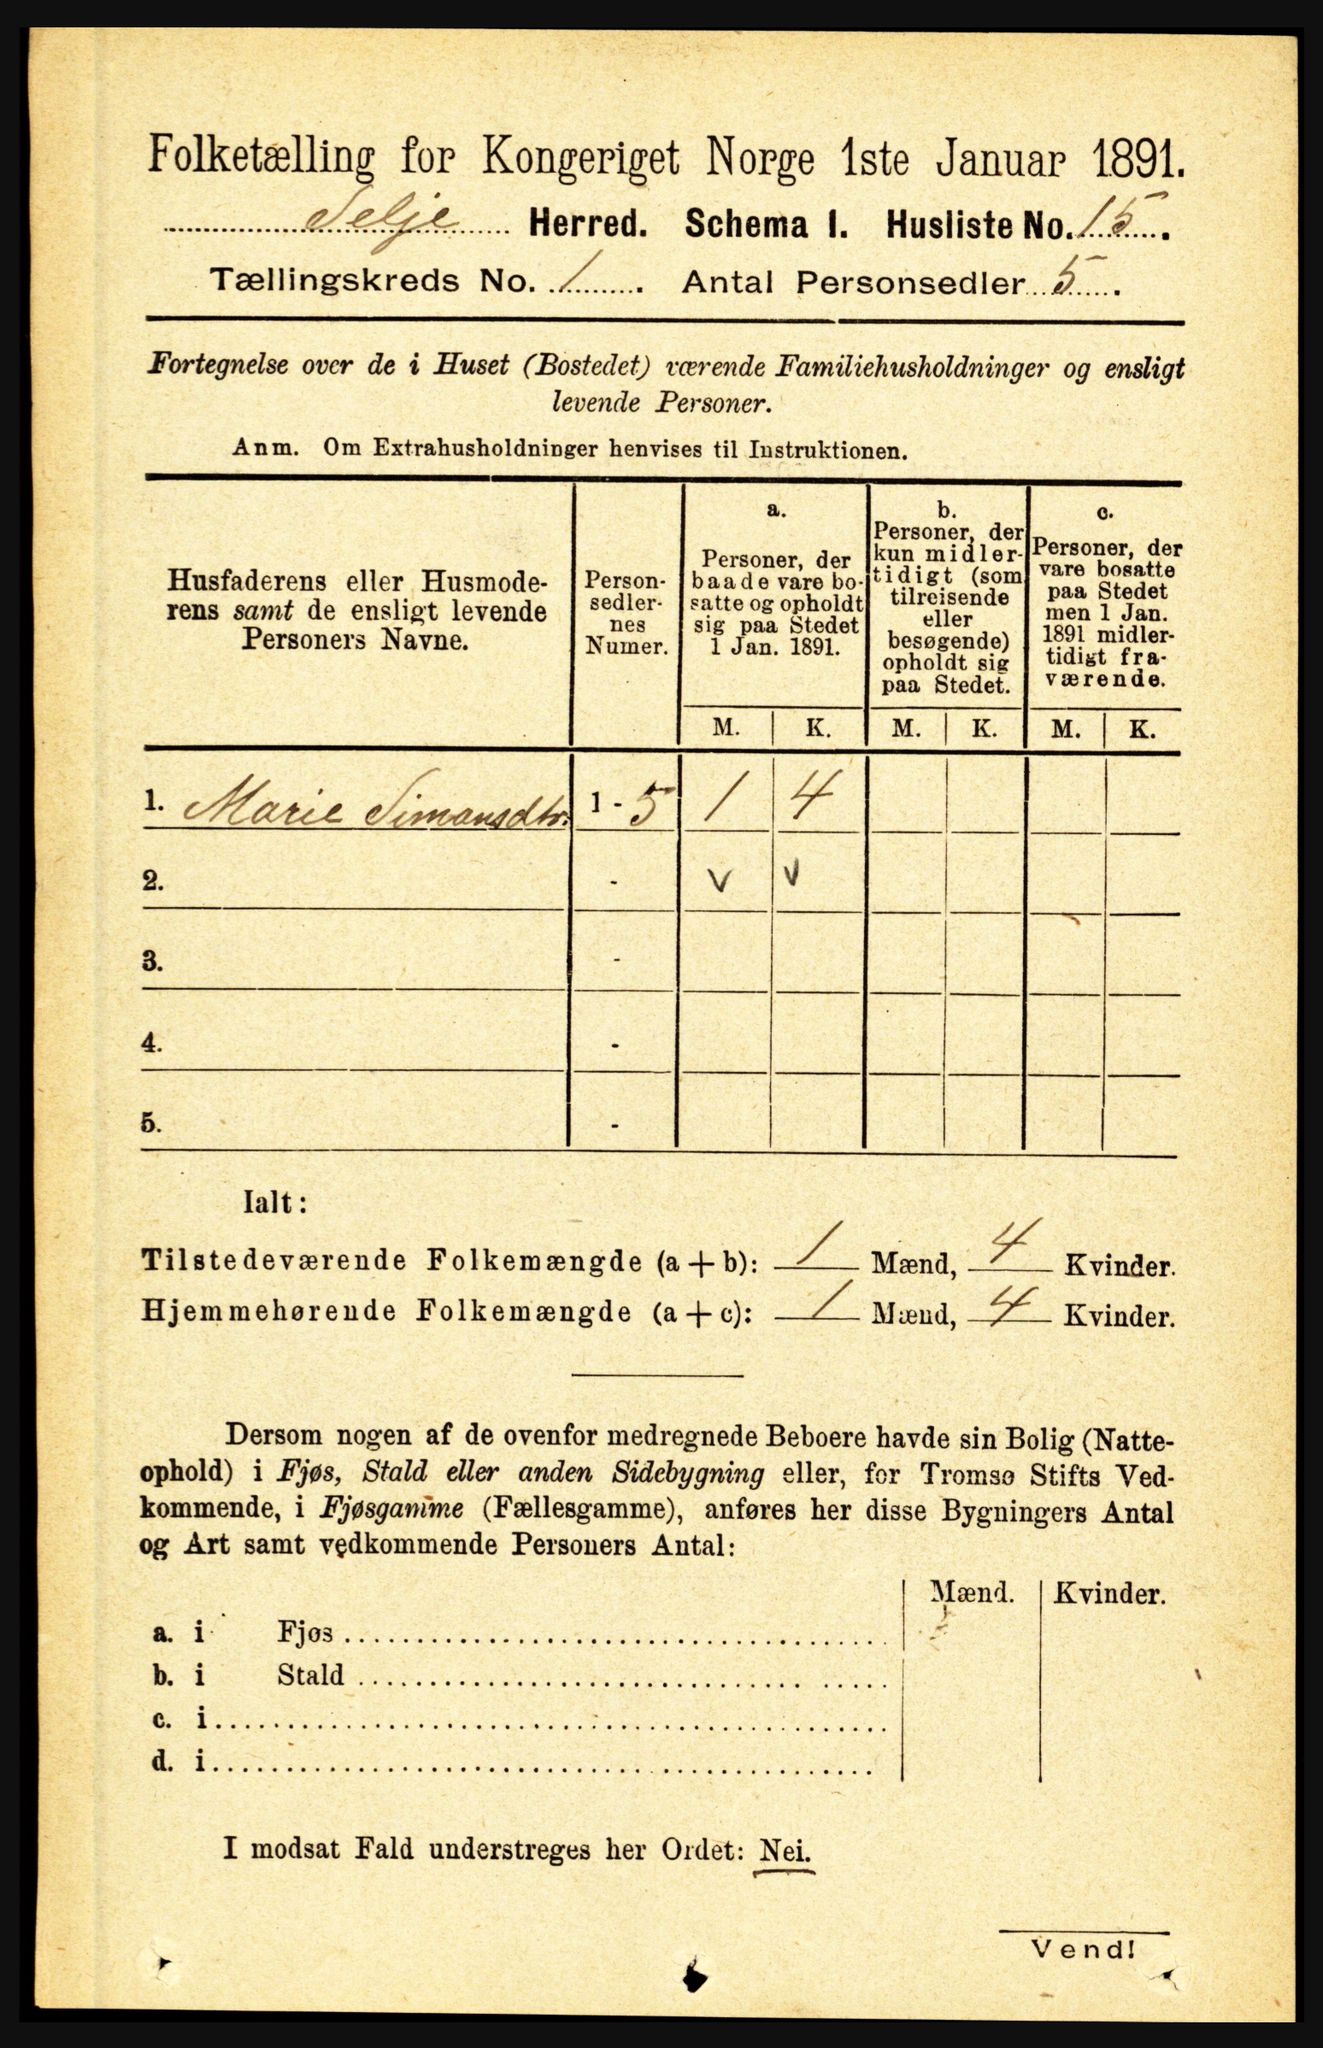 Folketælling for Kongeriget Norge 1ste Januar 1891.
Selje Herred. Schema I. Husliste No. 15.
Tællingskreds No. 1. Antal Personsedler 5.
Fortegnelse over de i Huset (Bostedet) værende Familiehusholdninger og ensligt
levende Personer.
Anm. Om Extrahusholdninger henvises til Instruktionen.
Husfaderens eller Husmode-
rens samt de ensligt levende
Personers Navne.
Person-
sedler-
nes
Numer.
a.
Personer, der
baade vare bo-
satte og opholdt
sig paa Stedet
1 Jan. 1891.
b.
Personer, der
kun midler-
tidigt (som
tilreisende
eller
besøgende)
opholdt sig
paa Stedet.
c.
Personer, der
vare bosatte
paa Stedet
men 1 Jan.
1891 midler-
tidigt fra-
værende.
M. K. M. K. M. K.
1. Marie Simonsdtr. 1 - 5 1 4
2. - v v
3. -
4. -
5. -
Ialt:
Tilstedeværende Folkemængde (a + b): 1 Mænd, 4 Kvinder.
Hjemmehørende Folkemængde (a + c): 1 Mænd, 4 Kvinder.
Dersom nogen af de ovenfor medregnede Beboere havde sin Bolig (Natte-
ophold) i Fjøs, Stald eller anden Sidebygning eller, for Tromsø Stifts Ved-
kommende, i Fjøsgamme (Fællesgamme), anføres her disse Bygningers Antal
og Art samt vedkommende Personers Antal:
Mænd. Kvinder.
a. i Fjøs
b. i Stald
c. i
d. i
I modsat Fald understreges her Ordet: Nei.
Vend!